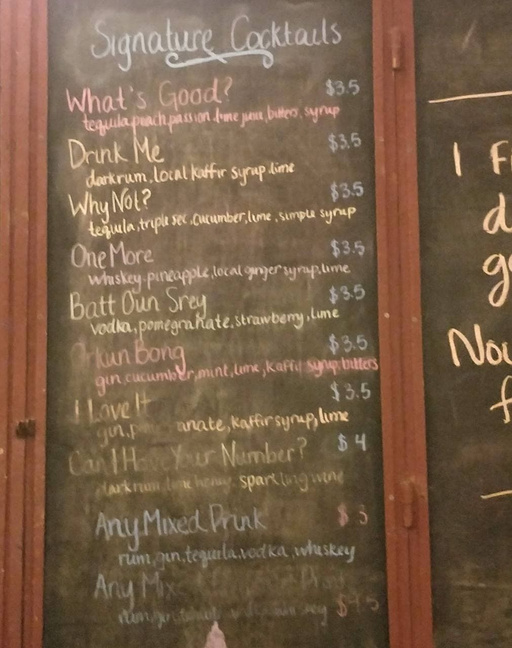 Signature Cocktails
What's Good? $3.5
tequila, peach, passion, lime juice, bitters, syrup
Drink Me $3.5
dark rum, local kaffir syrup, lime
Why Not? $3.5
tequila, triple sec, cucumber, lime, simple syrup
One More $3.5
whiskey, pineapple, local ginger syrup, lime
Batt Oun Srey $3.5
vodka, pomegranate, strawberry, lime
Orkun Bong $3.5
gin, cucumber, mint, lime, kaffir syrup, bitters
I Love It $3.5
gin, anate, kaffir syrup, lime
Can I Have Your Number? $4
dark rum, lime, honey, sparkling wine
Any Mixed Drink $3
rum, gin, tequila, vodka, whiskey
Any Mix
I F
d
g
Nou
f